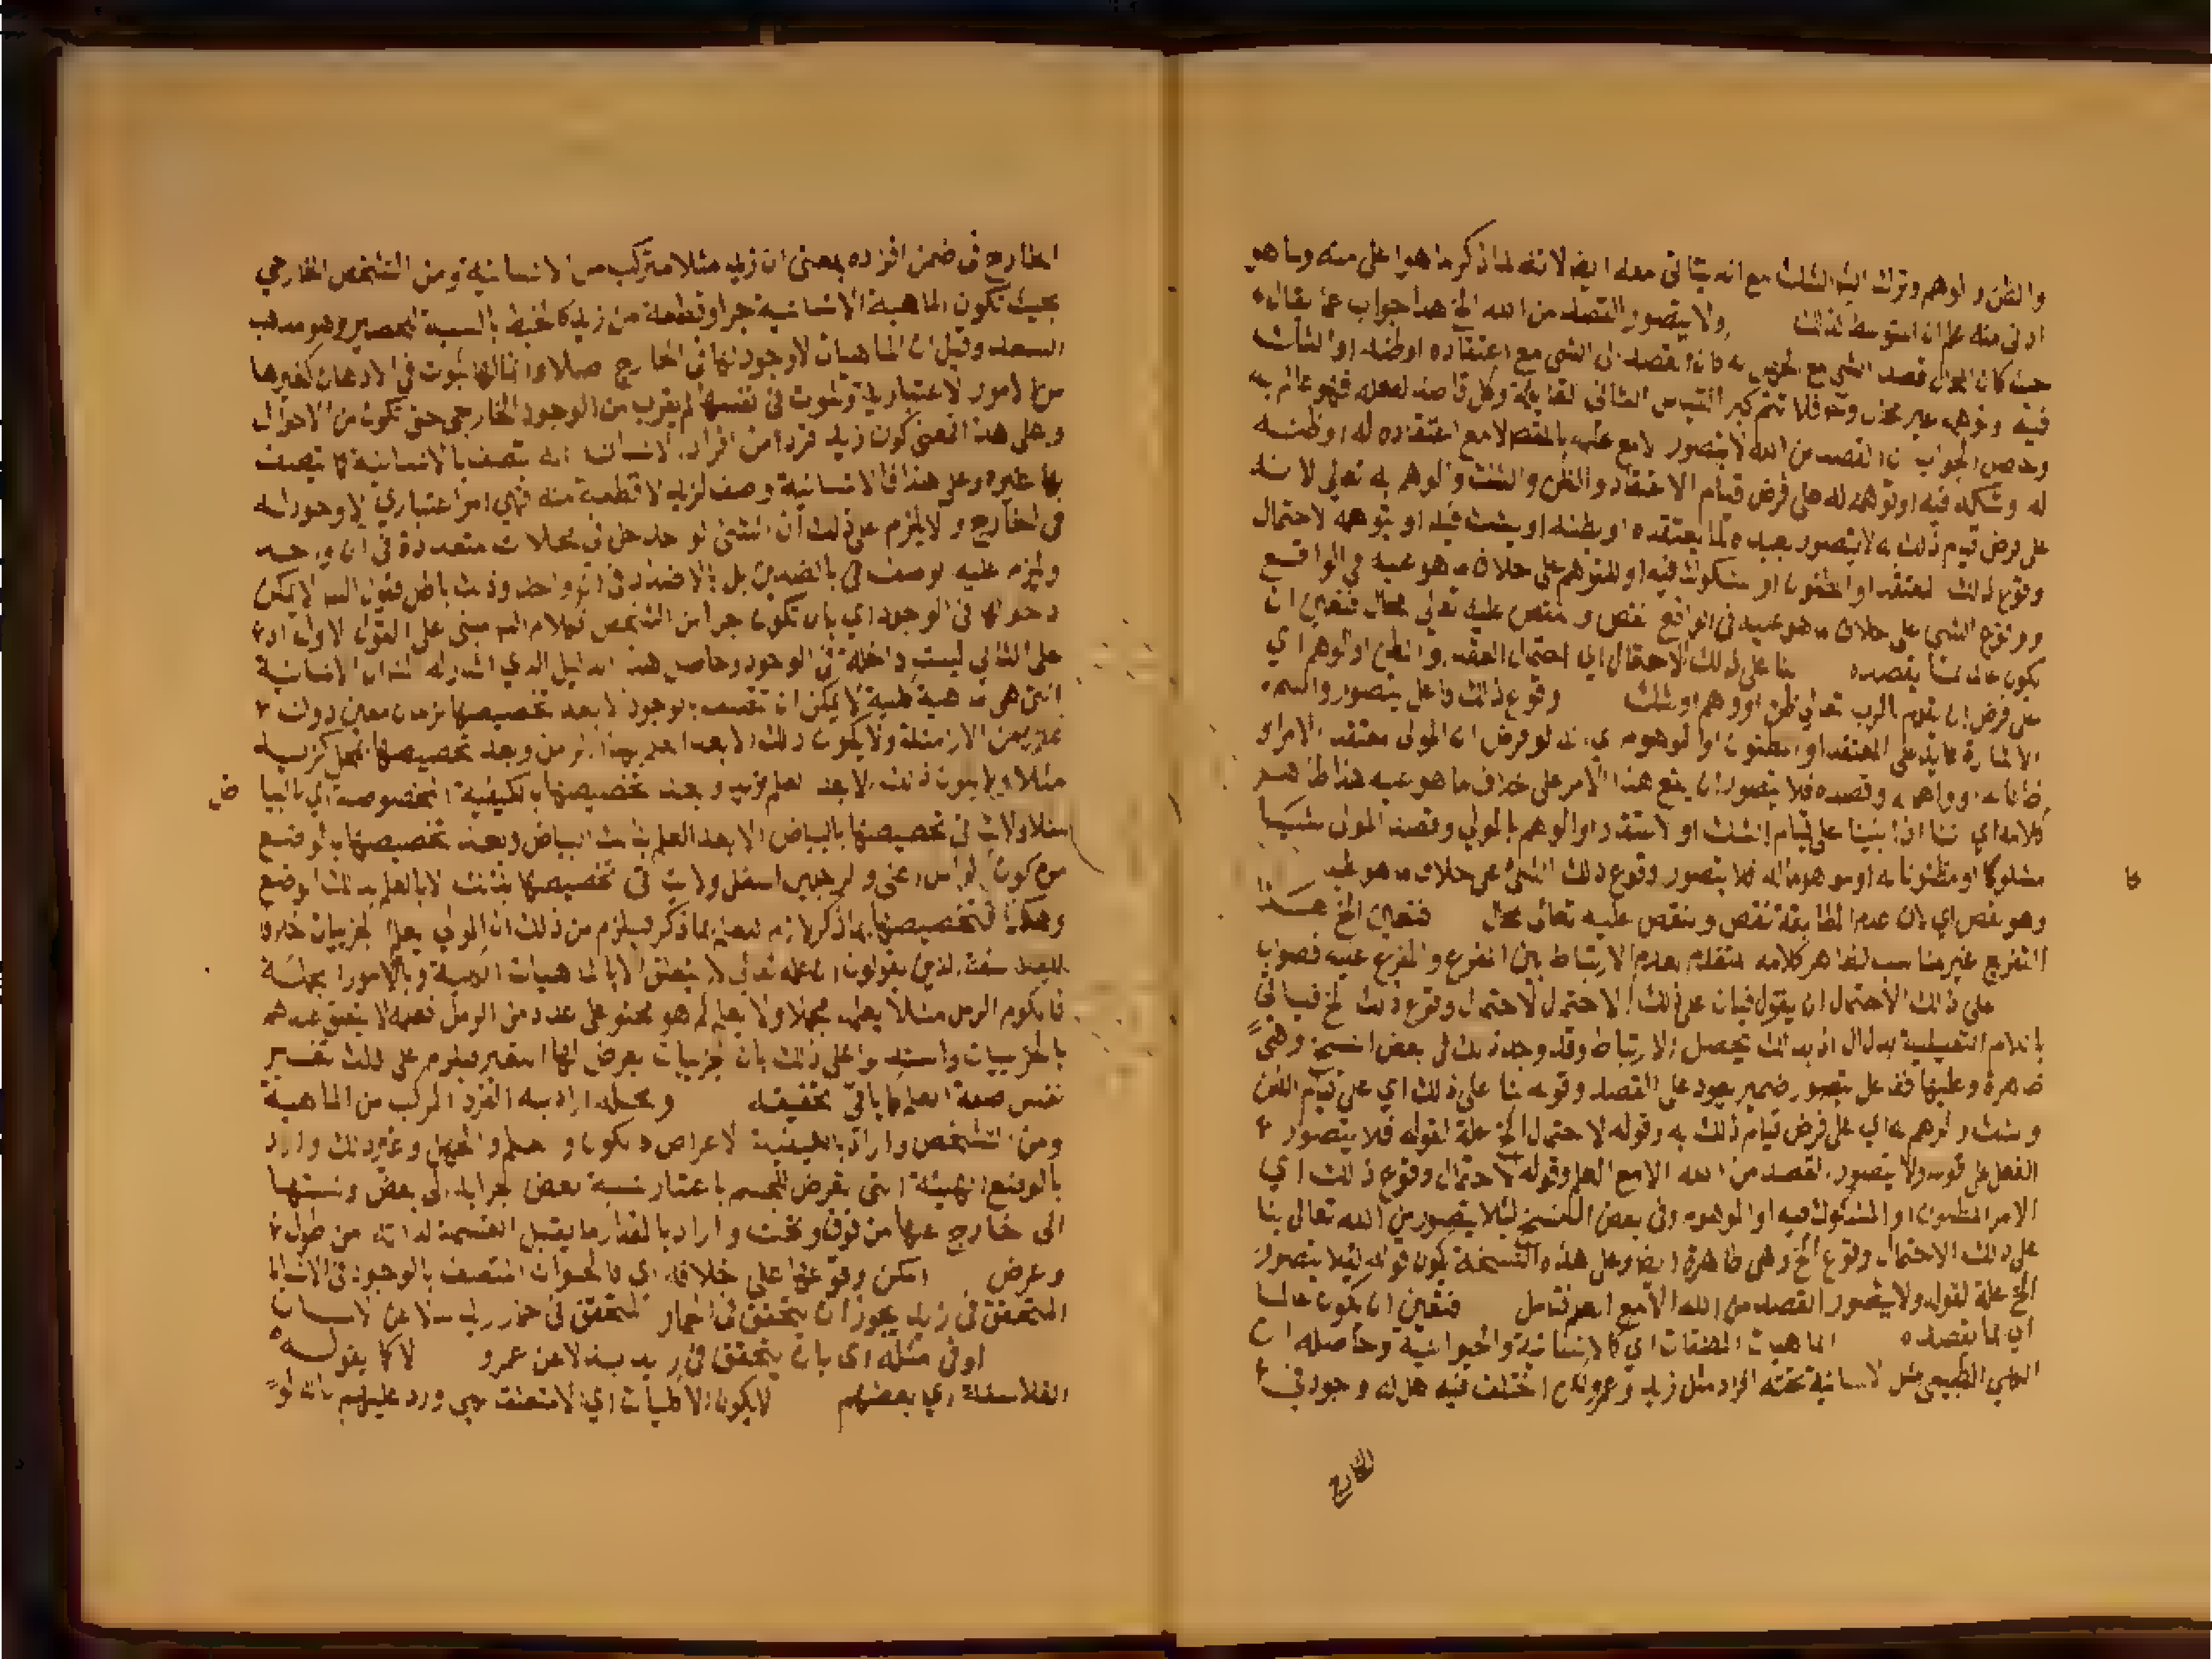 والظن والوهم وترك الشك مع انه يتاتى معه ايضا لانه لما ذكر ما هو اعلى منه وما هو
ادنى منه علم ان المتوسط كذلك ولا يتصور القصد من الله الخ هذا جواب عما يقال
فيه وتوهمه غير مخل فلا تتم كبرى القياس الثاني القائلة وكل قاصد لفعله فهو عالم به
وحاصل الجواب ان القصد من الله لا يتصور الا مع علمه بالمقصد لا مع اعتقاده له او ظنه
له وشكه فيه او توهمه له على فرض قيام الاعتقاد والظن والشك والوهم به تعالى لانه
على فرض قيام ذلك به لا يتصور بعده لما يعتقده او يظنه او يشك فيه او يتوهمه لاحتمال
وقوع ذلك المعتقد او المظنون او المشكوك فيه او المتوهم على خلاف ما هو عليه في الواقع
ووقوع الشي على خلاف ما هو عليه في الواقع نقص والنقص عليه تعالى محال فتعين ان
يكون عالما بما يقصده بنا على ذلك الاحتمال اي احتمال العقد والظن او الوهم اي
على فرض ان يقوم بالرب تعالى ظن او وهم او شك وقوع ذلك فاعل يتصور واسم
الاشارة عايد على المعتقد او المظنون او الموهوم اي انه لو فرض ان المولى معتقد الامر او
ظانا له او واهما له وقصده فلا يتصور ان يقع هذا الامر على خلاف ما هو عليه هذا ظاهر
كلامه اي اننا اذا بنينا على قيام الشك او الاعتقاد او الوهم بالمولى وقصد المولى شيئا
مشكوكا او مظنونا له او موهوما له فلا يتصور وقوع ذلك الشئ على خلاف ما هو عليه
وهو نقص اي لان عدم المطابقة نقص والنقص عليه تعالى محال فتعين الخ هذا
التفريع غير مناسب لظاهر كلامه المتقدم بعدم الارتباط بين المفرع والمفرع عليه فصواب
على ذلك الاحتمال ان يقول فبان على ذلك الاحتمال لاحتمال وقوع ذلك الخ فياتي
بلام التعليلية بدل ال اذ بذلك يحصل الارتباط وقد وجد ذلك في بعض النسخ وهي
ظاهرة وعليها ففاعل يتصور ضمير يعود على القصد وقوله بنا على ذلك اي على قيام الظن
والشك والوهم به اي على فرض قيام ذلك به وقوله لاحتمال الخ علة لقوله فلا يتصور
الفعل على قوله ولا يتصور القصد من الله الا مع العلم وقوله لاحتمال وقوع ذلك اي
الامر المظنون او المشكوك فيه او الموهوم وفي بعض النسخ لئلا يتصور من الله تعالى بنا
على ذلك الاحتمال وقوع الخ وهي ظاهرة ايضا وعلى هذه النسخة يكون قوله لئلا يتصور
الخ علة لقوله ولا يتصور القصد من الله الا مع العلم فتامل فتعين ان يكون عالما
اي بما يقصده الماهيات المطلقات اي كالانسانية والحيوانية وحاصله ان
الكلي الطبيعي مثل الانسانية تحته افراد مثل زيد وعمرو اختلف فيه هل له وجود في
الخارج
الخارج في ضمن افراده بمعنى ان زيد مثلا متركب من الانسانية ومن التشخص الخارجي
بحيث تكون الماهية الانسانية جزا وقطعة من زيد كالخيط بالنسبة للحصير وهو مذهب
السعد وقيل ان الماهيات لا وجود لها في الخارج اصلا وانما لها ثبوت في الاذهان كغيرها
من الامور الاعتبارية وثبوت في نفسها لم يقرب من الوجود الخارجي حتى تكون من الاحوال
وعلى هذا فمعنى كون زيد فردا من افراد الانسان انه متصف بالانسانية كما يتصف
بها غيره وعلى هذا فالانسانية وصف لزيد لا قطعة منه فهي امر اعتباري لا وجود له
في الخارج ولا يلزم على ذلك ان الشئ الواحد حل في محلات متعددة في ان واحد
ويلزم عليه وصف الشي بالضدين بل بالاضداد في ان واحد وذلك باطل فقول الشه لا يمكن
دخولها في الوجود اي بان تكون جزا من الشخص فكلام الشه مبني على القول الاول اذ
على الثاني ليست داخلة في الوجود وحاصل هذا الدليل الذي اشار له الشه ان الانسانية
التي هي ماهية كلية لا يمكن ان تتصف بالوجود الا بعد تخصيصها بزمان معين دون
غيره من الازمنة ولا يكون ذلك الا بعد العلم بهذا الزمن وبعد تخصيصها بمحل كزبيد
مثلا ولا يكون ذلك الا بعد العلم بزبيد وبعد تخصيصها بالكيفية المخصوصة اي بالبياض
مثلا ولا يتاتى تخصيصها بالبياض الا بعد العلم بذلك البياض وبعد تخصيصها بالوضع
من كون الراس اعلى والرجلين اسفل ولا يتاتى تخصيصها بذلك الا بالعلم بذلك الوضع
وهكذا فتخصيصها بما ذكر لازم للعلم بما ذكر فيلزم من ذلك ان المولى يعلم الجزئيات خلافا
للفلاسفة الذين يقولون ان علمه تعالى لا يتعلق الا بالماهيات الكلية وبالامور المجملة
فاكوام الرمل مثلا يعلمه مجملا ولا يعلم كم هو محتو على عدد من الرمل فعلمه لا يتعلق عندهم
بالجزئيات واستدلوا على ذلك بان الجزئيات يعرض لها التغير فيلزم على ذلك تغير
نفس صفة العلم كما ياتي تحقيقه ومحله اراد به الفرد المركب من الماهية
ومن التشخص واراد بالكيفية الاعراض كالكون والعلم والجهل وغير ذلك واراد
بالوضع الهيئة التي تعرض للجسم باعتبار نسبة بعض اجزايه الى بعض ونسبتها
الى خارج عنها من فوق وتحت واراد بالمقدار ما يقبل القسمة لذاته من طول
وعرض امكن وقوعها على خلافه اي فالحيوان المتصف بالوجود في الانسان
المتحقق في زيد يجوز ان يتحقق في الحمار المتحقق في حمار زيد بدلا عن الانسان
او في مثله اي بان يتحقق في زيد بدلا عن عمرو لا كما يقوله
الفلاسفة اي بعضهم لا يكون الا كليات اي لا متعلقة بجزئي ورد عليهم بانه لو
ض